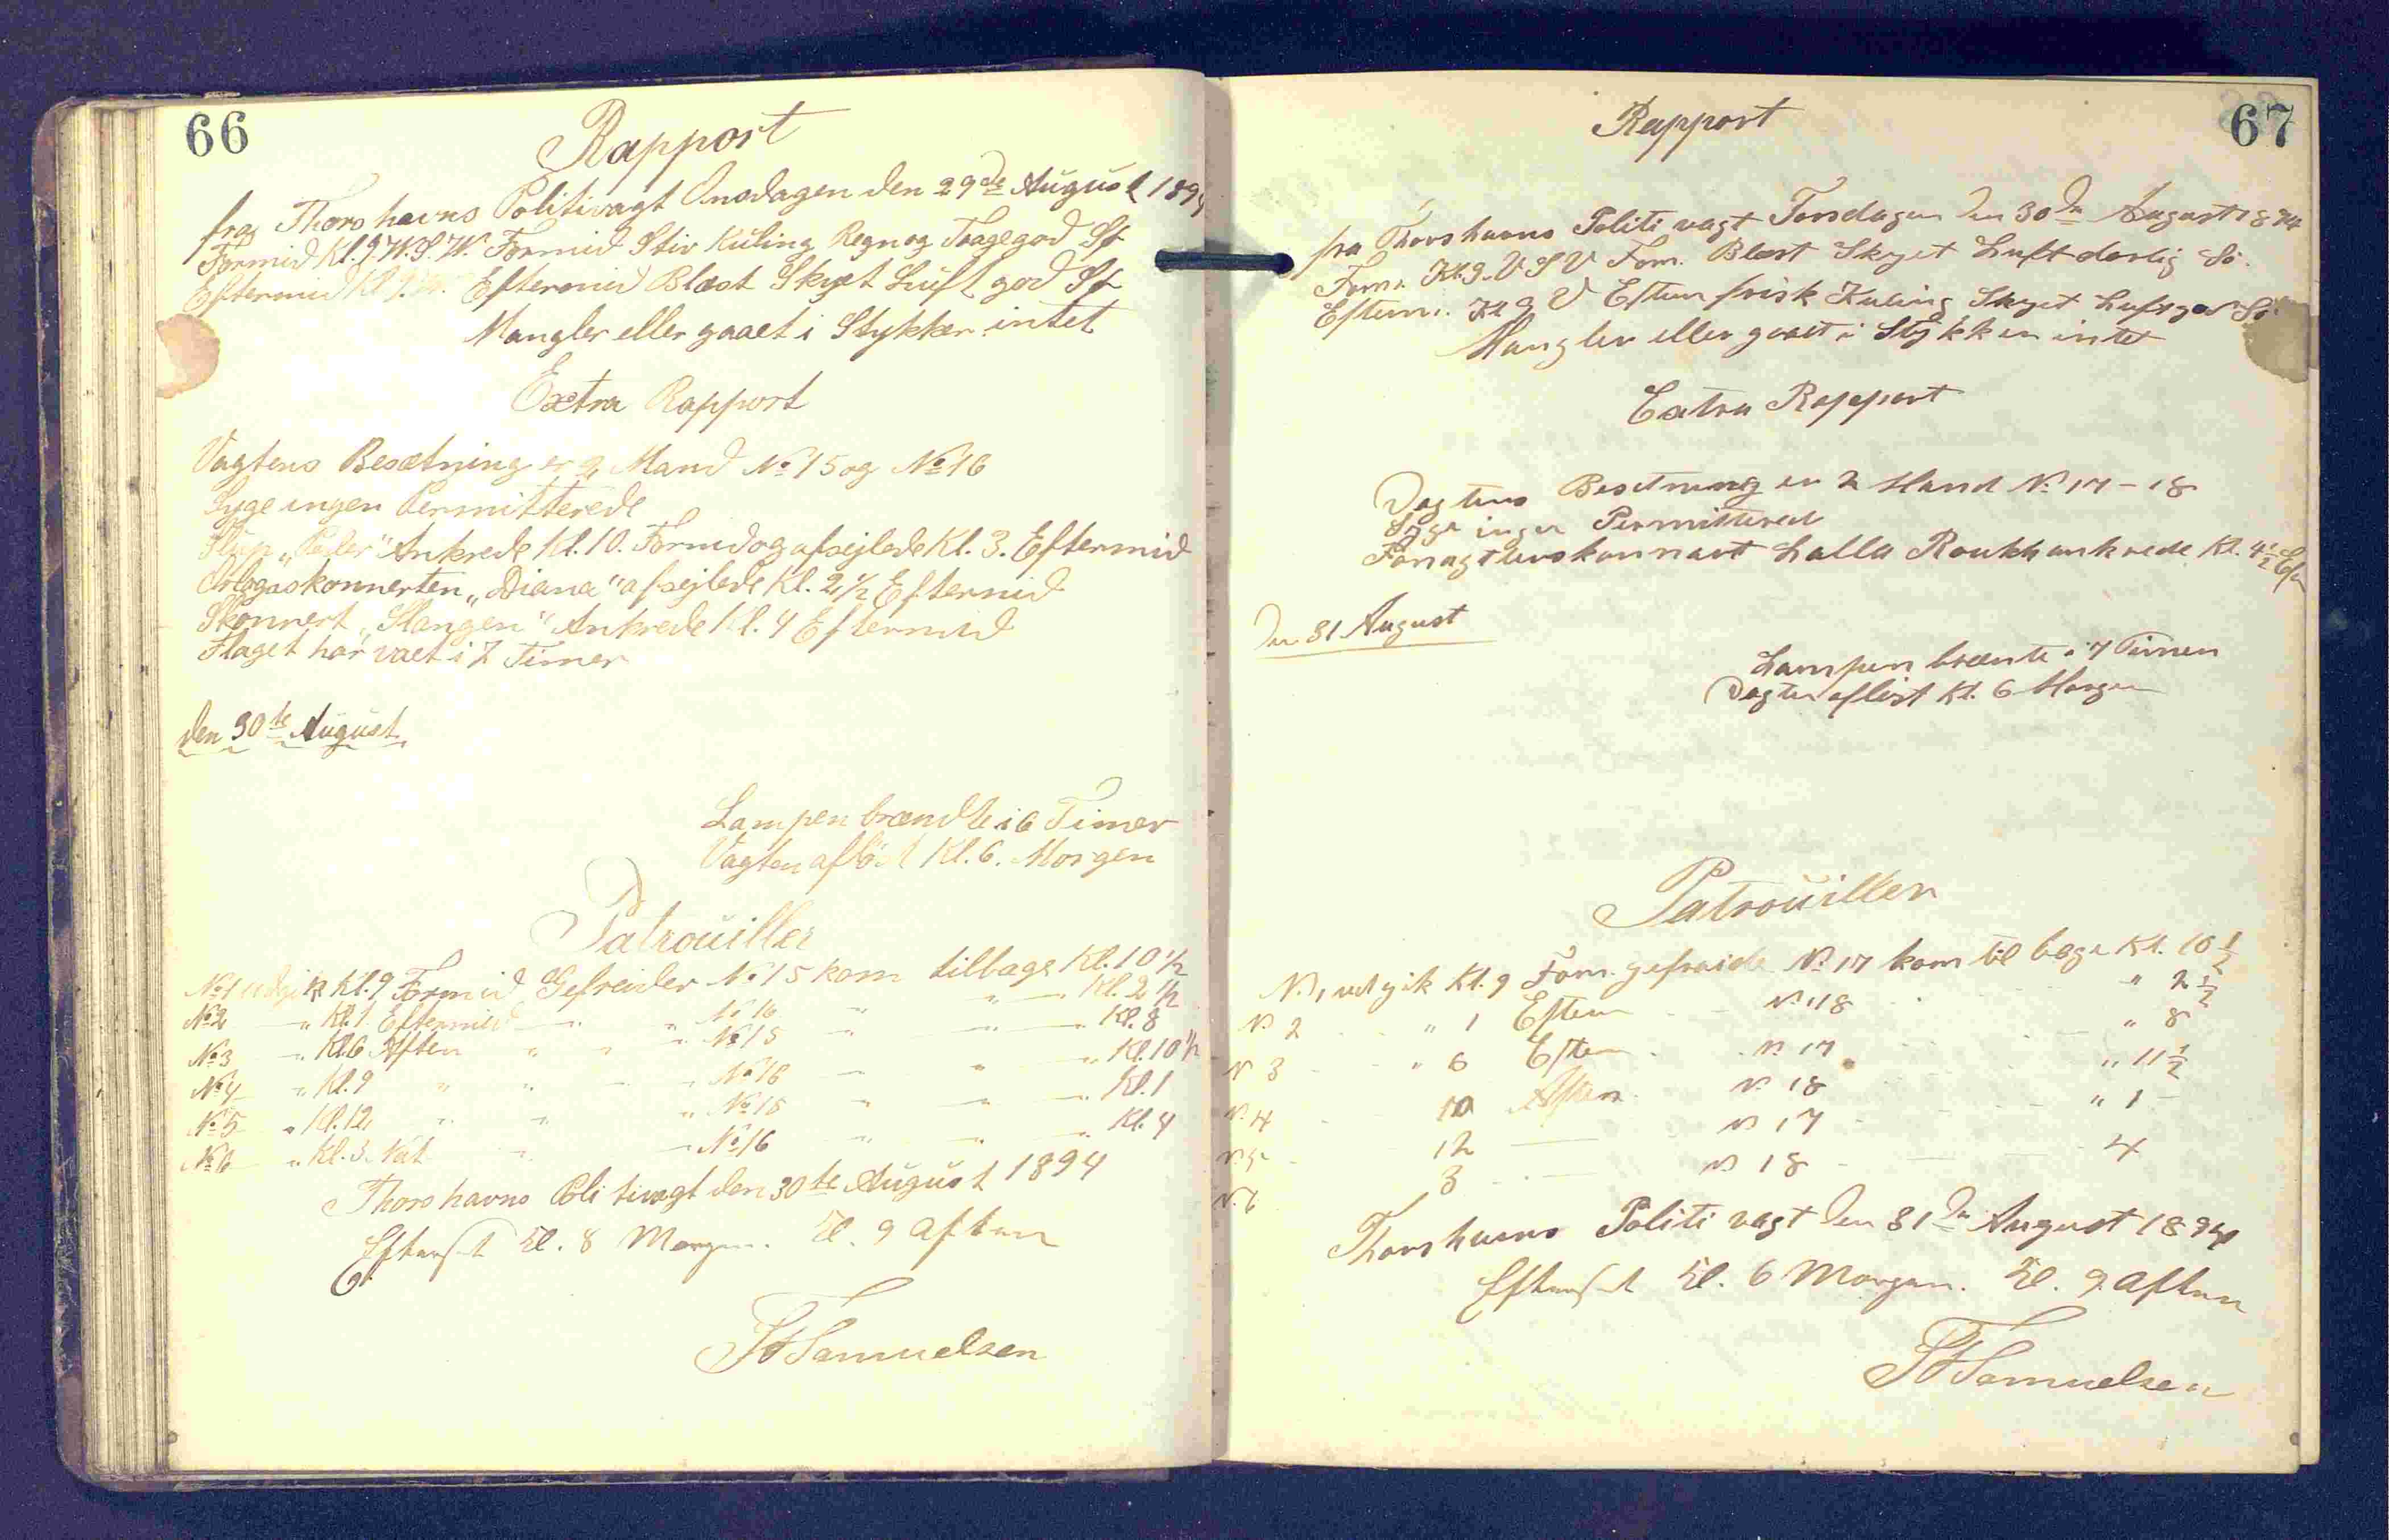 66
Rapport
fra Thorshavns Politivagt Onsdagen den 29de August 1894
Formid Kl. 9. W.S.W. Formid Stiv Kuling Regn og Taage god Sø
Eftermid Kl. 9. Eftermid Blæst Skyet Luft god Sø
Mangler eller gaaet i Stykker intet
Extra Rapport
Vagtens Besætning er 2 Mand No 15 og No 16
Syge ingen Permitterede
Slup „ “ Ankrede Kl. 10. Formid og afsejlede Kl. 3. Eftermid
Orlogsskonnerten „Diana“ afsejlede Kl. 2 1/2 Eftermid
Skonnert „Slangen“ Ankrede Kl. 4 Eftermid
Flaget har vaet i 7 Timer
den 30te August
Lampen brændte i 6 Timer
Vagten afløst Kl. 6. Morgen
Patrouiller
No 1 udgik Kl. 9 Formid Gefreider No 15 kom tilbage Kl. 10 1/2
No 2 „ Kl. 1 Eftermid „ „ No 16 „ „ „ Kl. 2 1/2
No 3 „ Kl. 6 Aften „ „ „ No 15 „ „ „ Kl. 8
No 4 „ Kl. 9 „ „ „ No 16 „ „ „ Kl. 10 1/2
No 5 „ Kl. 12 „ „ „ No 15 „ „ „ Kl. 1
No 6 „ Kl. 3. Nat „ „ No 16 „ „ „ Kl. 4
Thorshavns Politivagt den 30te August 1894
Efterset Kl. 8 Morgen. Kl. 9 Aften
Samuelsen
67
Rapport
fra Thorshavns Politivagt Torsdagen den 30te August 1894
Form. Kl. 9. V S V Form. Blæst Skyet Luft daarlig Sø.
Efterm. Kl 9 V Efterm frisk Kuling Skyet Luft god Sø
Mangler eller gaaet i Stykker intet
Extra Rapport
Vagtens Besetning er 2 Mand No 17 - 18
Syge ingen Permittered
Lalla Roukh ankrede Kl. 4 1/2 Efm
Den 31 August
Lampen brænte i 7 Timer
Vagten afløst Kl. 6 Morgen
Patrouiller
No 1 udgik Kl. 9 Form. gefraider No 17 kom tilbage Kl. 10 1/2
No 2 „ 1 Efterm No 18 „ 2 1/2
No 3 „ 6 Efterm No 17 „ 8
No 4 10 Aften No 18 „ 11 1/2
No 5 12 No 17 „ 1
No 6 3 No 18 4
Thorshavns Politivagt den 31te August 1894
Efterset Kl. 6 Morgen. Kl. 9 Aften
Samuelsen